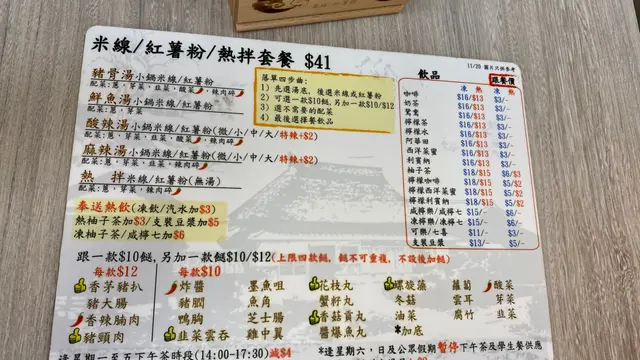 米線/紅薯粉/熱拌套餐 $41
11/20 圖片只供參考
豬骨湯小鍋米線/紅薯粉
配菜:蔥，芽菜，韭菜，酸菜，辣肉碎
鮮魚湯小鍋米線/紅薯粉
配菜:蔥，芽菜，韭菜
酸辣湯小鍋米線/紅薯粉(微/小/中/大/特辣+$2)
配菜:蔥，芽菜，韭菜，酸菜，辣肉碎
麻辣湯小鍋米線/紅薯粉(微/小/中/大/特辣+$2)
配菜:蔥，芽菜，韭菜，辣肉碎
熱 拌米線/紅薯粉(無湯)
配菜:蔥，芽菜，辣肉碎
落單四步曲:
1) 先選湯底，後選米線或紅薯粉
2) 可選一款$10餸,另加一款$10/$12
3) 選不需要的配菜
4) 最後選擇餐飲品
奉送熱飲(凍飲/汽水加$3)
熱柚子茶加$3/支裝豆漿加$5
凍柚子茶/咸檸七加$6
飲品 跟餐價
凍 熱 凍 熱
咖啡 $16/$13 $3/-
奶茶 $16/$13 $3/-
鴛鴦 $16/$13 $3/-
檸檬茶 $16/$13 $3/-
檸檬水 $16/$13 $3/-
阿華田 $16/$13 $3/-
西洋菜蜜 $16/$13 $3/-
利賓納 $16/$13 $3/-
柚子茶 $18/$15 $6/$3
檸檬咖啡 $18/$15 $5/$2
檸檬西洋菜蜜 $18/$15 $5/$2
檸檬利賓納 $18/$15 $5/$2
咸檸樂/咸檸七 $15/- $6/-
凍檸樂/凍檸七 $15/- $6/-
可樂/七喜 $11/- $3/-
支裝豆漿 $13/- $5/-
跟一款$10餸，另加一款餸$10/$12(上限四款餸，餸不可重複，不設後加餸)
每款$12 每款$10
香茅豬扒 炸醬 墨魚咀 花枝丸 螺旋藻 蘿蔔 酸菜
豬大腸 豬膶 魚角 蟹籽丸 冬菇 雲耳 芽菜
香辣腩肉 鴨胸 芝士腸 香菇貢丸 油菜 腐竹 韭菜
豬頸肉 韭菜雲吞 雞中翼 醬爆魚丸 *加底
逢星期一至五下午茶時段(14:00-17:30)減$4
*逢星期六，日及公眾假期暫停下午茶及學生餐供應